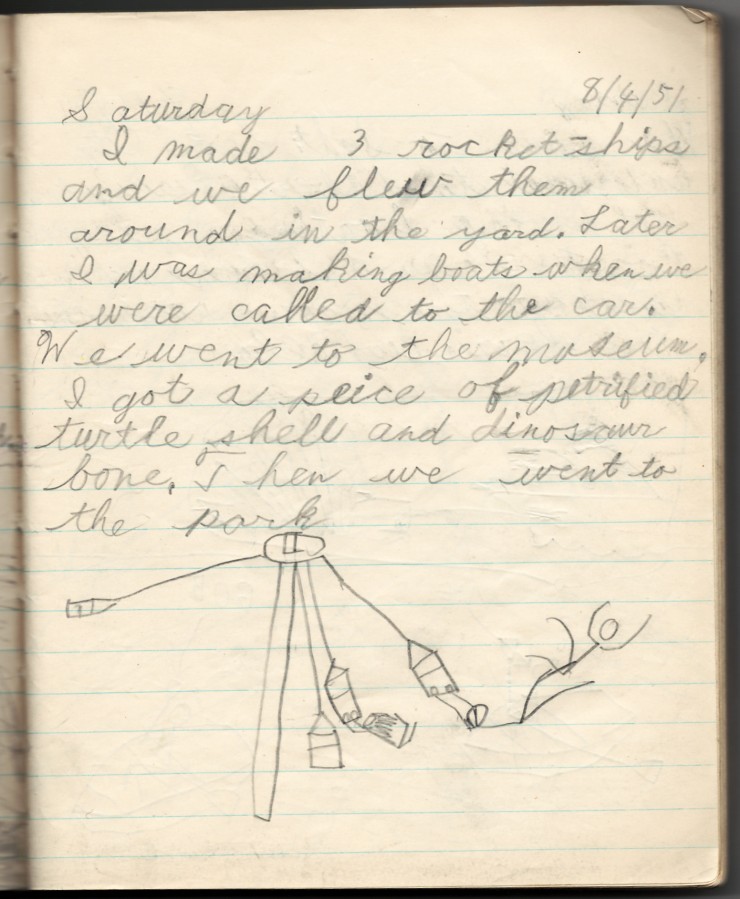 8/4/51
Saturday
I made 3 rocket-ships
and we flew them
around in the yard. Later
I was making boats when we
were called to the car.
We went to the museum.
I got a peice of petrified
turtle shell and dinosaur
bone. Then we went to
the park